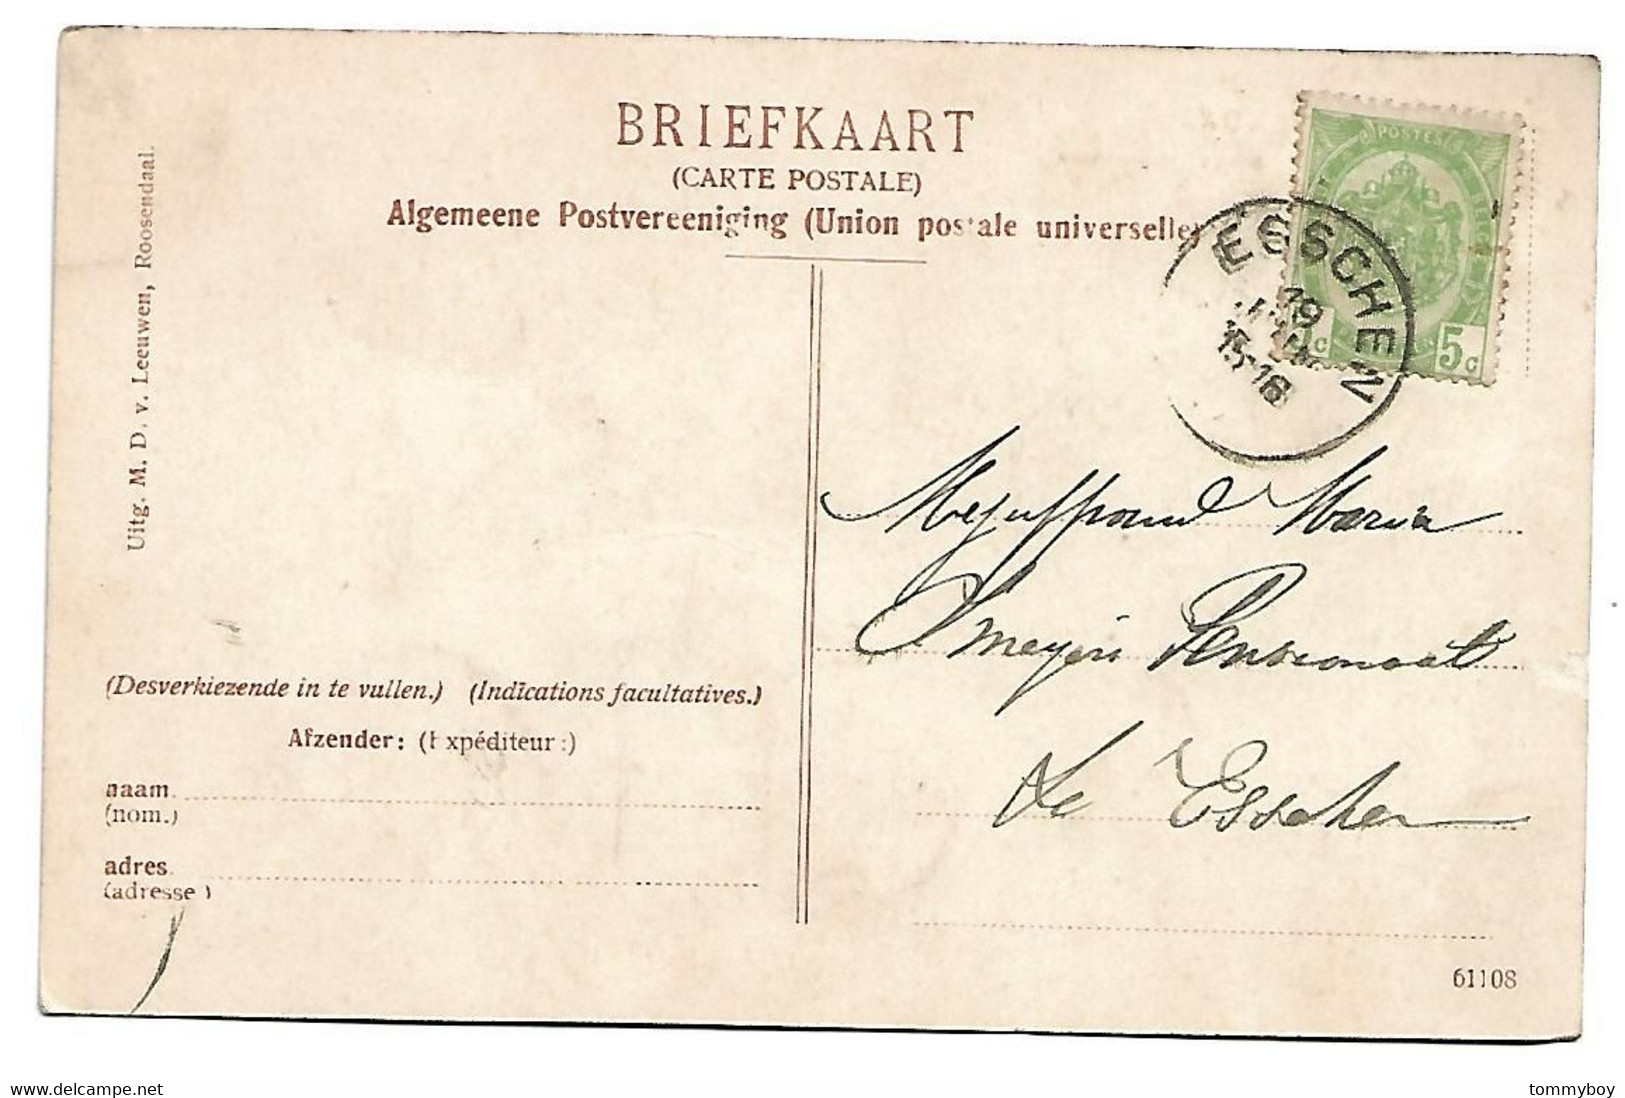 BRIEFKAART
(CARTE POSTALE)
Algemeene Postvereeniging (Union postale universelle)
Uitg. M. D. v. Leeuwen, Roosendaal.
POSTES
5c
ESSCHEN
19
15-16
Mejuffrouw Maria
Smeyers Pensionaat
te Esschen
(Desverkiezende in te vullen.) (Indications facultatives.)
Afzender: (Expéditeur:)
naam
(nom.)
adres
(adresse)
61108
www.delcampe.net
tommyboy